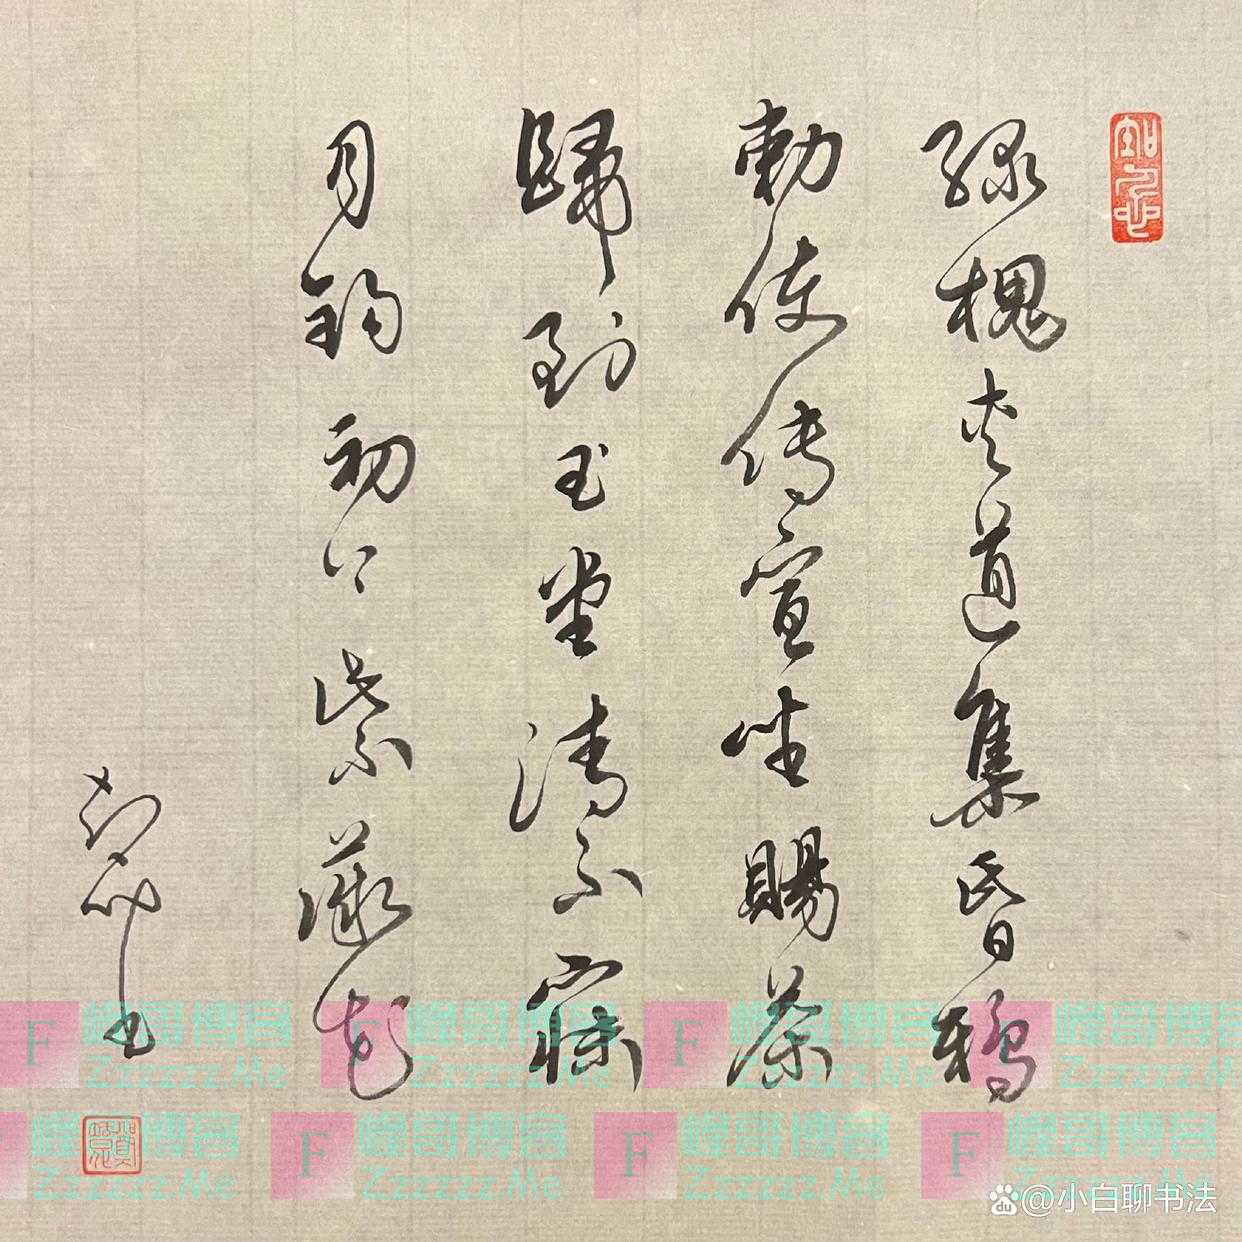 綠槐夾道集昏鴉
勅使傳宣坐賜茶
歸到玉堂清不寐
月鈎初上紫薇花
書
F 峰哥博客 F 峰哥博客 F 峰哥博客 F 峰哥博客
Zzzzzz.Me Zzzzzz.Me Zzzzzz.Me Zzzzzz.M
峰哥博客 F 峰哥博客 F 峰哥博客 F 峰哥博客
Zzzzzz.Me Zzzzzz.Me Zzzzzz.Me Zzzzzz.Me
du @小白聊书法